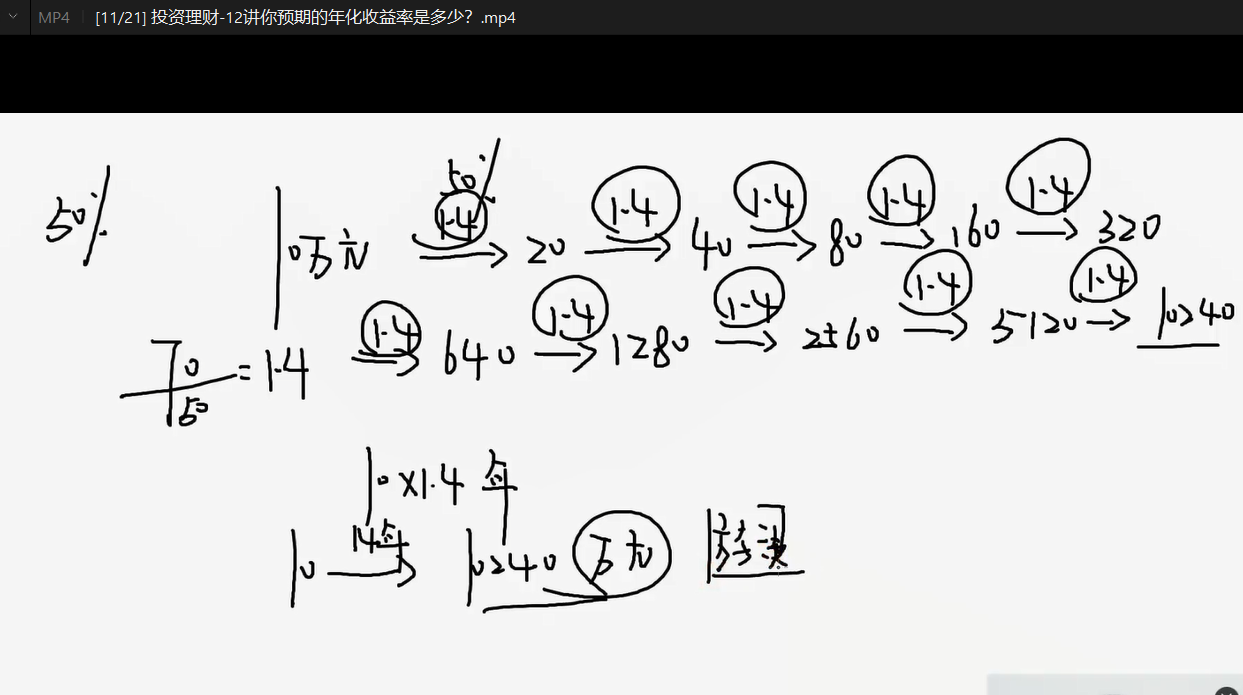 MP4 [11/21] 投资理财-12讲你预期的年化收益率是多少? .mp4
50%
50%
10万元 1.4 → 20 1.4 → 40 1.4 → 80 1.4 → 160 1.4 → 320
1.4 → 640 1.4 → 1280 1.4 → 2560 1.4 → 5120 1.4 → 10240
70/50 = 1.4
10×1.4年
14年
10 → 10240 万元